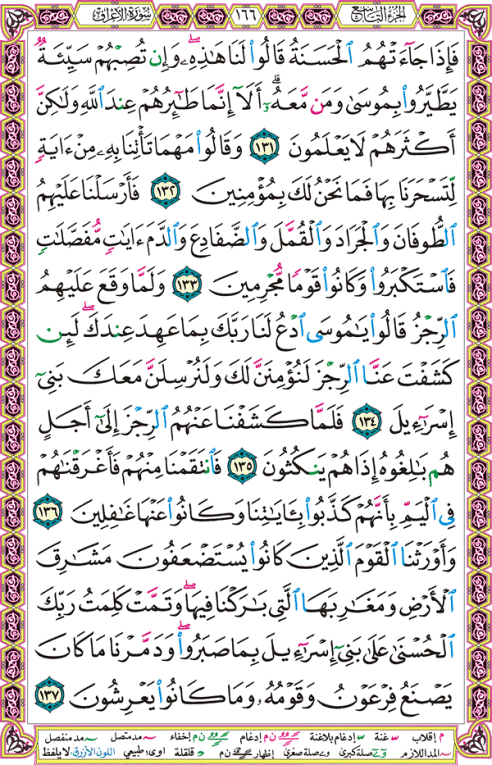 الجزء التاسع ١٦٦ سورة الأعراف
فَإِذَا جَآءَتْهُمُ ٱلْحَسَنَةُ قَالُوا۟ لَنَا هَٰذِهِۦۖ وَإِن تُصِبْهُمْ سَيِّئَةٌ
يَطَّيَّرُوا۟ بِمُوسَىٰ وَمَن مَّعَهُۥٓۗ أَلَآ إِنَّمَا طَٰٓئِرُهُمْ عِندَ ٱللَّهِ وَلَٰكِنَّ
أَكْثَرَهُمْ لَا يَعْلَمُونَ ١٣١ وَقَالُوا۟ مَهْمَا تَأْتِنَا بِهِۦ مِنْ ءَايَةٍ
لِّتَسْحَرَنَا بِهَا فَمَا نَحْنُ لَكَ بِمُؤْمِنِينَ ١٣٢ فَأَرْسَلْنَا عَلَيْهِمُ
ٱلطُّوفَانَ وَٱلْجَرَادَ وَٱلْقُمَّلَ وَٱلضَّفَادِعَ وَٱلدَّمَ ءَايَٰتٍ مُّفَصَّلَٰتٍ
فَٱسْتَكْبَرُوا۟ وَكَانُوا۟ قَوْمًا مُّجْرِمِينَ ١٣٣ وَلَمَّا وَقَعَ عَلَيْهِمُ
ٱلرِّجْزُ قَالُوا۟ يَٰمُوسَى ٱدْعُ لَنَا رَبَّكَ بِمَا عَهِدَ عِندَكَۖ لَئِن
كَشَفْتَ عَنَّا ٱلرِّجْزَ لَنُؤْمِنَنَّ لَكَ وَلَنُرْسِلَنَّ مَعَكَ بَنِىٓ
إِسْرَٰٓءِيلَ ١٣٤ فَلَمَّا كَشَفْنَا عَنْهُمُ ٱلرِّجْزَ إِلَىٰٓ أَجَلٍ
هُم بَٰلِغُوهُ إِذَا هُمْ يَنكُثُونَ ١٣٥ فَٱنتَقَمْنَا مِنْهُمْ فَأَغْرَقْنَٰهُمْ
فِى ٱلْيَمِّ بِأَنَّهُمْ كَذَّبُوا۟ بِـَٔايَٰتِنَا وَكَانُوا۟ عَنْهَا غَٰفِلِينَ ١٣٦
وَأَوْرَثْنَا ٱلْقَوْمَ ٱلَّذِينَ كَانُوا۟ يُسْتَضْعَفُونَ مَشَٰرِقَ
ٱلْأَرْضِ وَمَغَٰرِبَهَا ٱلَّتِى بَٰرَكْنَا فِيهَاۖ وَتَمَّتْ كَلِمَتُ رَبِّكَ
ٱلْحُسْنَىٰ عَلَىٰ بَنِىٓ إِسْرَٰٓءِيلَ بِمَا صَبَرُوا۟ۖ وَدَمَّرْنَا مَا كَانَ
يَصْنَعُ فِرْعَوْنُ وَقَوْمُهُۥ وَمَا كَانُوا۟ يَعْرِشُونَ ١٣٧
م إقلاب غنة إدغام بلاغنة ن م إدغام ن م إخفاء مد متصل مد منفصل
المد اللازم صلة كبرى صلة صغرى إظهار ن م قلقلة اوى: طبيعي اللون الأزرق: لا يلفظ